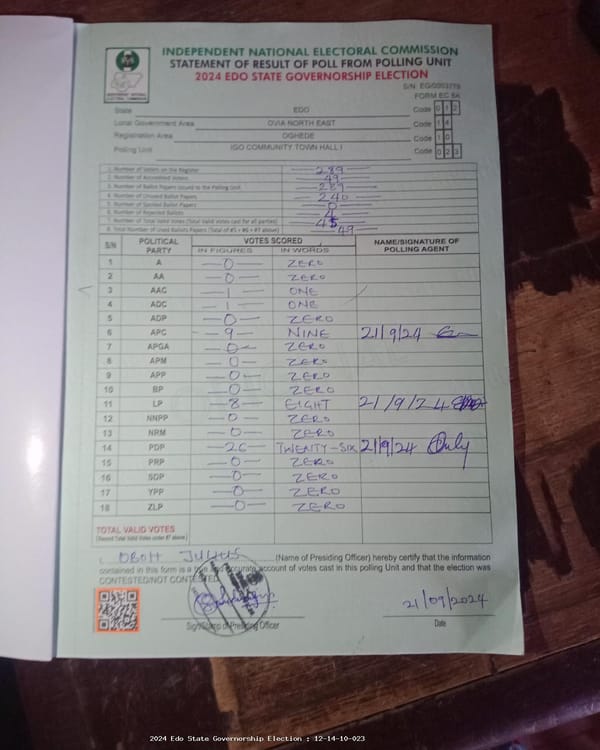 INDEPENDENT NATIONAL ELECTORAL COMMISSION
STATEMENT OF RESULT OF POLL FROM POLLING UNIT
2024 EDO STATE GOVERNORSHIP ELECTION
FORM EC 8A
State EDO Code 0 1 2
Local Government Area OVIA NORTH EAST Code 1 4
Registration Area OGHEDE Code 1 0
Polling Unit IGO COMMUNITY TOWN HALL I Code 0 2 3
1. Number of Voters on the Register 289
2. Number of Accredited Voters 49
3. Number of Ballot Papers Issued to the Polling Unit 289
4. Number of Unused Ballot Papers 240
5. Number of Spoiled Ballot Papers 0
6. Number of Rejected Ballots 4
7. Number of Total Valid Votes (Total Valid Votes cast for all parties) 45
8. Total Number of Used Ballots Papers (Total of #5 + #6 + #7 above) 49
S/N POLITICAL PARTY VOTES SCORED NAME/SIGNATURE OF POLLING AGENT
IN FIGURES IN WORDS
1 A 0 ZERO
2 AA 0 ZERO
3 AAC 1 ONE
4 ADC 1 ONE
5 ADP 0 ZERO
6 APC 9 NINE 21/9/24
7 APGA 0 ZERO
8 APM 0 ZERO
9 APP 0 ZERO
10 BP 0 ZERO
11 LP 8 EIGHT 21/9/24
12 NNPP 0 ZERO
13 NRM 0 ZERO
14 PDP 26 TWENTY-SIX 21/9/24
15 PRP 0 ZERO
16 SDP 0 ZERO
17 YPP 0 ZERO
18 ZLP 0 ZERO
TOTAL VALID VOTES
(Record Total Valid Votes under #7 above)
I, OBOH JULIUS (Name of Presiding Officer) hereby certify that the information
contained in this form is a true and accurate account of votes cast in this polling Unit and that the election was
CONTESTED/NOT CONTESTED
21/09/2024
Sign/Stamp of Presiding Officer Date
2024 Edo State Governorship Election : 12-14-10-023